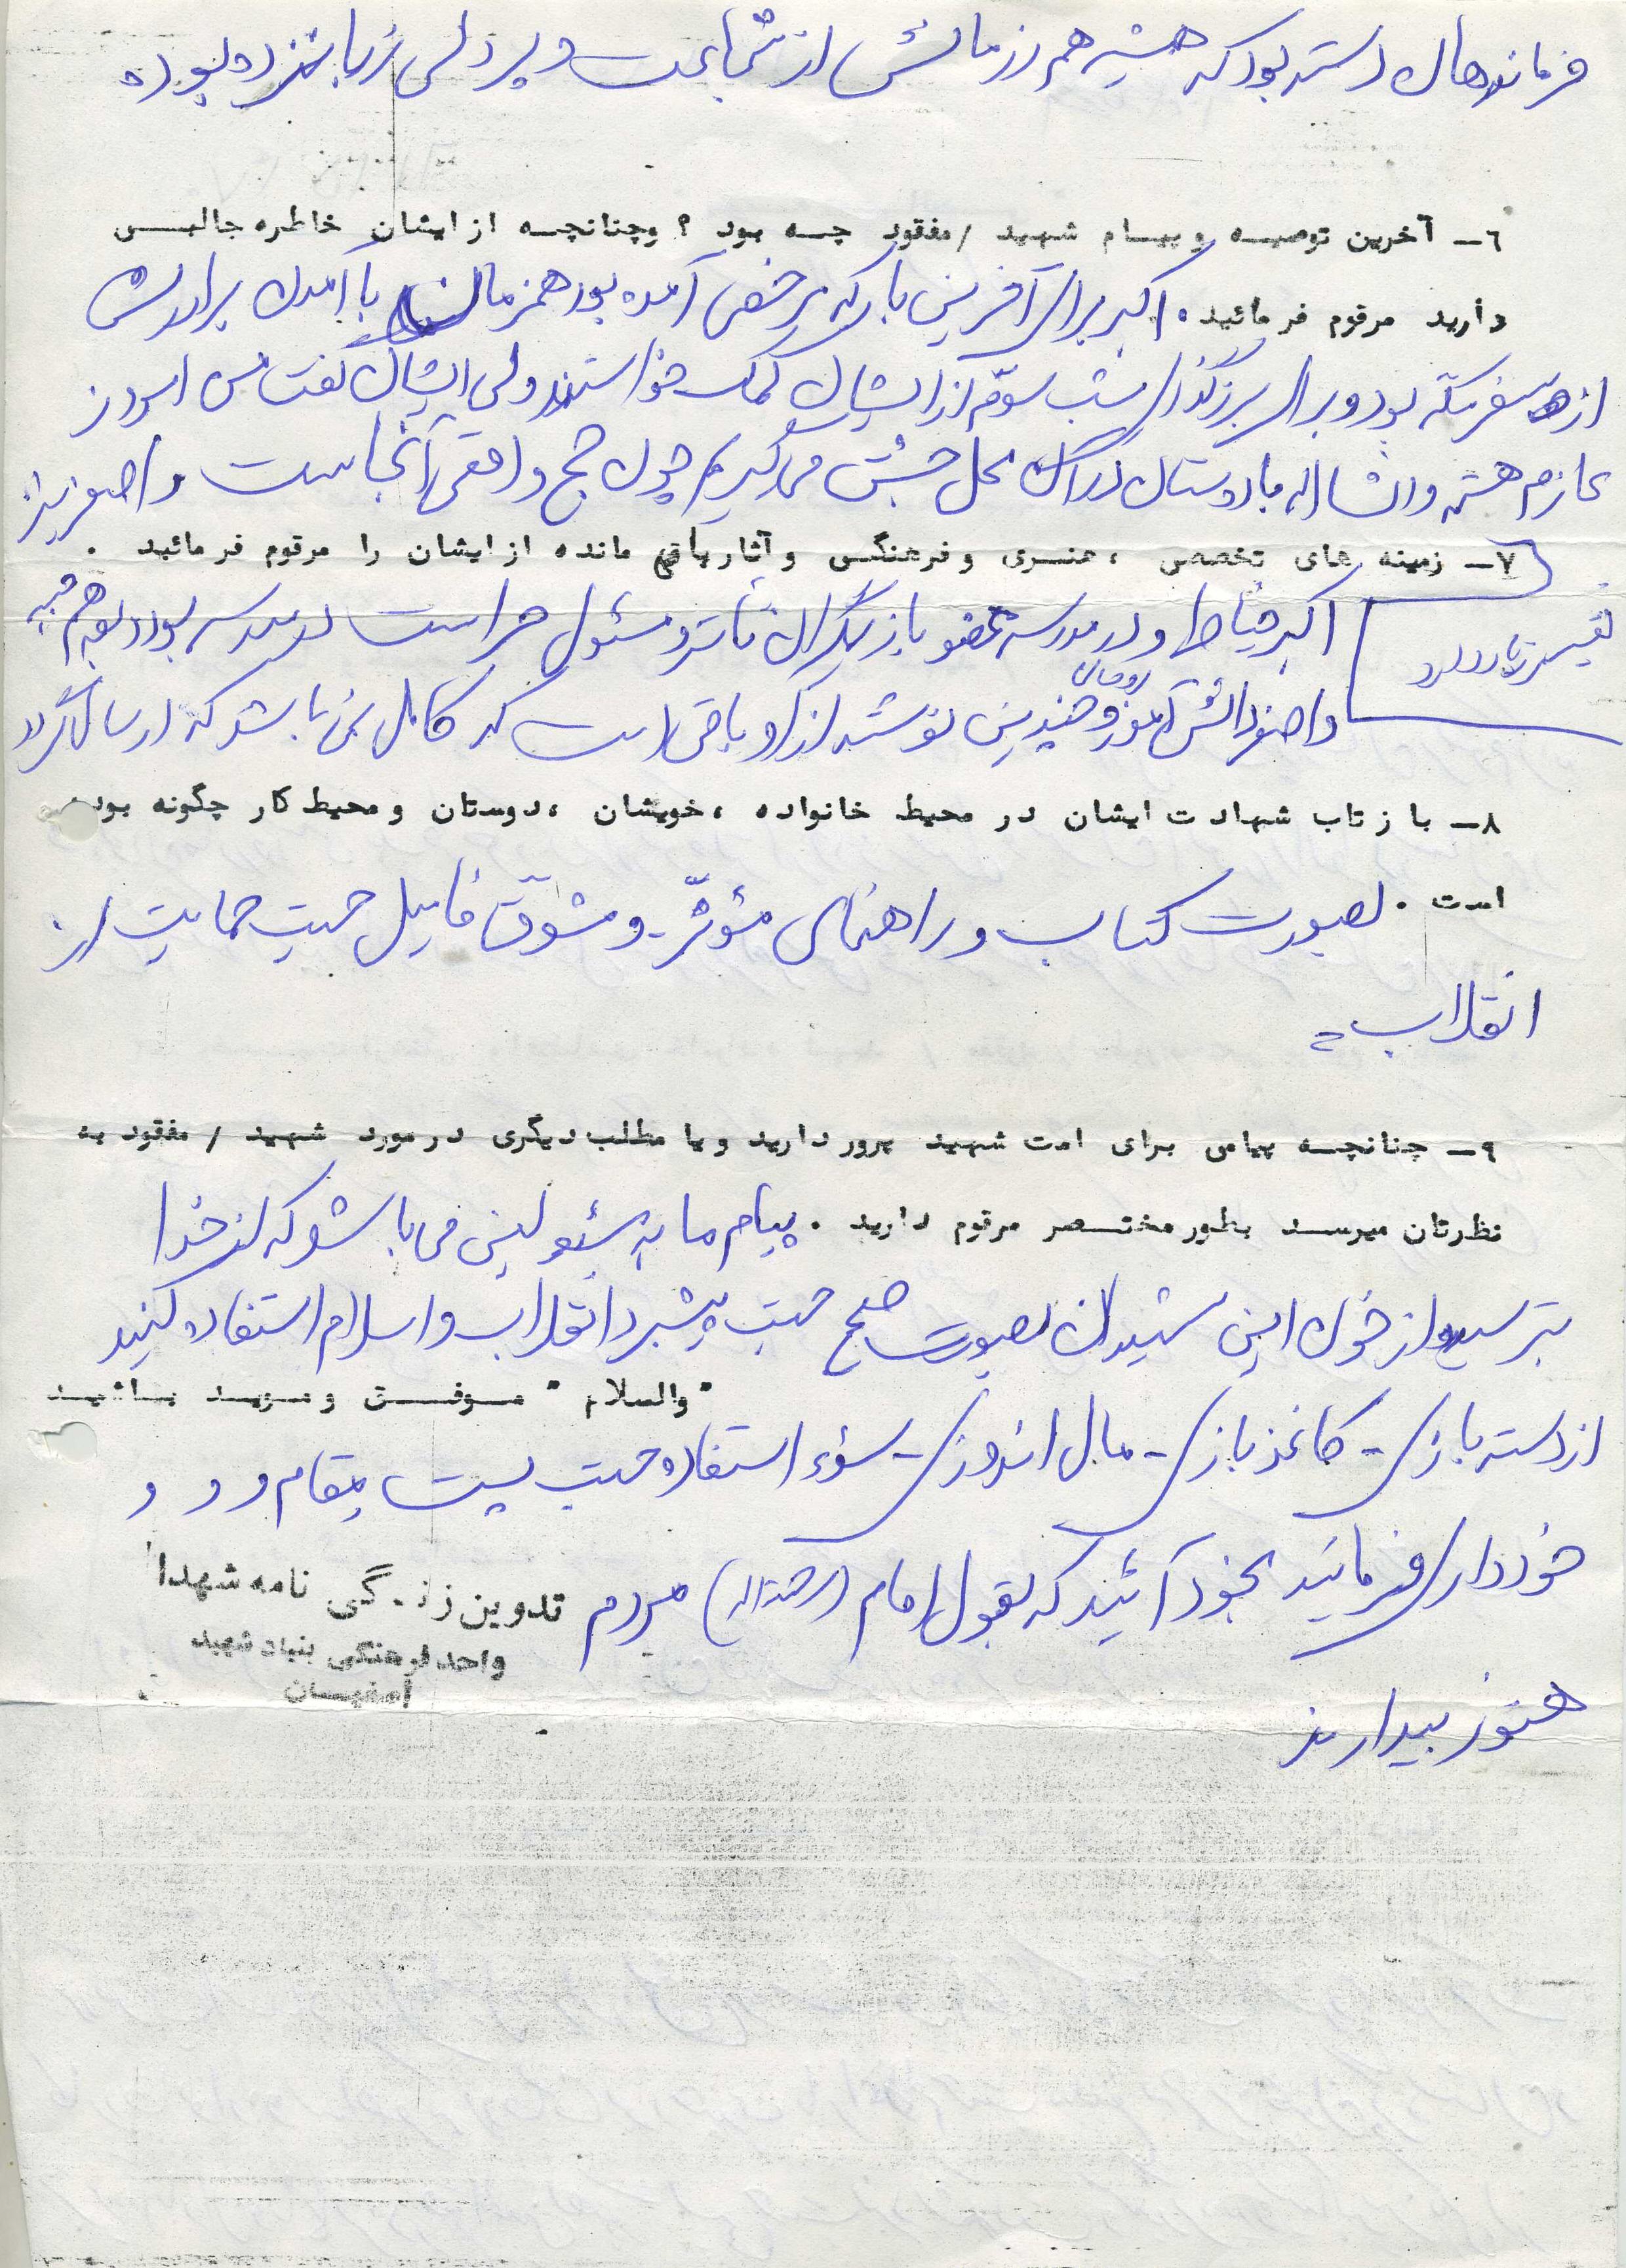 فرماندهان دسته بود که همیشه هم رزمانش از شجاعت و پر دلی زبانزد بوده
٦ــ آخرین توصیـه و پیـام شهید /مفقود چـه بود ؟ وچنانچـه از ایشان خاطره جالبـی
دارید مرقوم فرمائید . اکبر برای آخرین بار که مرخصی آمده بود همزمان با آمدن برادرش
از سفر مکه بود و برای برگذاری شب سوّم از ایشان کمک خواستند ولی ایشان گفت من امروز
عازم هستم وانشااله با دوستان در آن محل جشن می گیریم چون حج واقعی آنجاست
٧ــ زمینه های تخصصی ، هنـری و فرهنگـی و آثار باقی مانده از ایشان را مرقوم فرمائید .
اکبر خیاط و در مدرسه عضو بازیگران تأتر و مسئول حراست در مدرسه بود
و چندین نوشته از او باقی است که کامل نمی باشد که ارسال گردد
٨ــ بازتاب شهادت ایشان در محیط خانواده ، خویشان ، دوستان و محیط کار چگونه بوده
است . بصورت کتاب و راهنمای مؤثّر - و مشوّق فامیل جهت حمایت از
انقلاب =
٩ــ چنانچـه پیامی برای امت شهید پرور دارید و یا مطلب دیگری در مورد شهید / مفقود به
نظرتان میرسـد بطور مختـصر مرقوم دارید . پیام ما به مسئولین می باشد که از خدا
بترسید از خون این شهیدان بصورت صحیح جهت پیشبرد انقلاب و اسلام استفاده کنید
" والسلام " مـوفـق و مـوید بـاشیـد
از دسته بازی - کاغذ بازی - مال اندوزی - سوء استفاده جهت پست مقام و و و
خودداری فرمائید بخود آئید که بقول امام (رحمةاله) مردم
تدوین زندگی نامه شهدا
واحد فرهنگی بنیاد شهید
اصفهـان
هنوز بیدارند